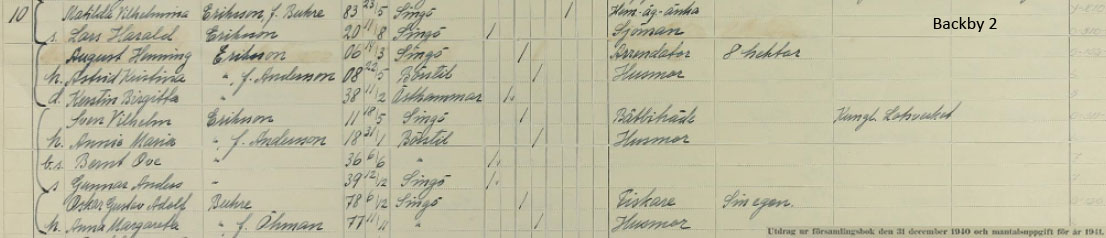 10 Matilda Vilhelmina Eriksson, f. Buhre 83 23/5 Singö 1 Hem-äg-änka
s. Lars Harald Eriksson 20 11/8 Singö 1 Sjöman Backby 2
August Henning Eriksson 06 14/3 Singö 1 Arrendator 8 hektar
h. Astrid Kristina " f. Andersson 08 22/5 Börstil 1 Husmor
d. Kerstin Birgitta " 38 11/2 Östhammar 1.
Sven Vilhelm Eriksson 11 18/5 Singö 1 Båtbiträde Kungl. Lotsverket
h. Annie Maria " f. Andersson 18 31/1 Börstil 1 Husmor
b.s Bernt Ove " 36 6/6 " 1.
s Gunnar Anders " 39 12/12 Singö 1.
Oskar Gustav Adolf Buhre 78 6/12 Singö 1 Fiskare Sin egen.
h. Anna Margareta " f. Öhman 77 11/11 " 1 Husmor
Utdrag ur församlingsbok den 31 december 1940 och mantalsuppgift för år 1941.